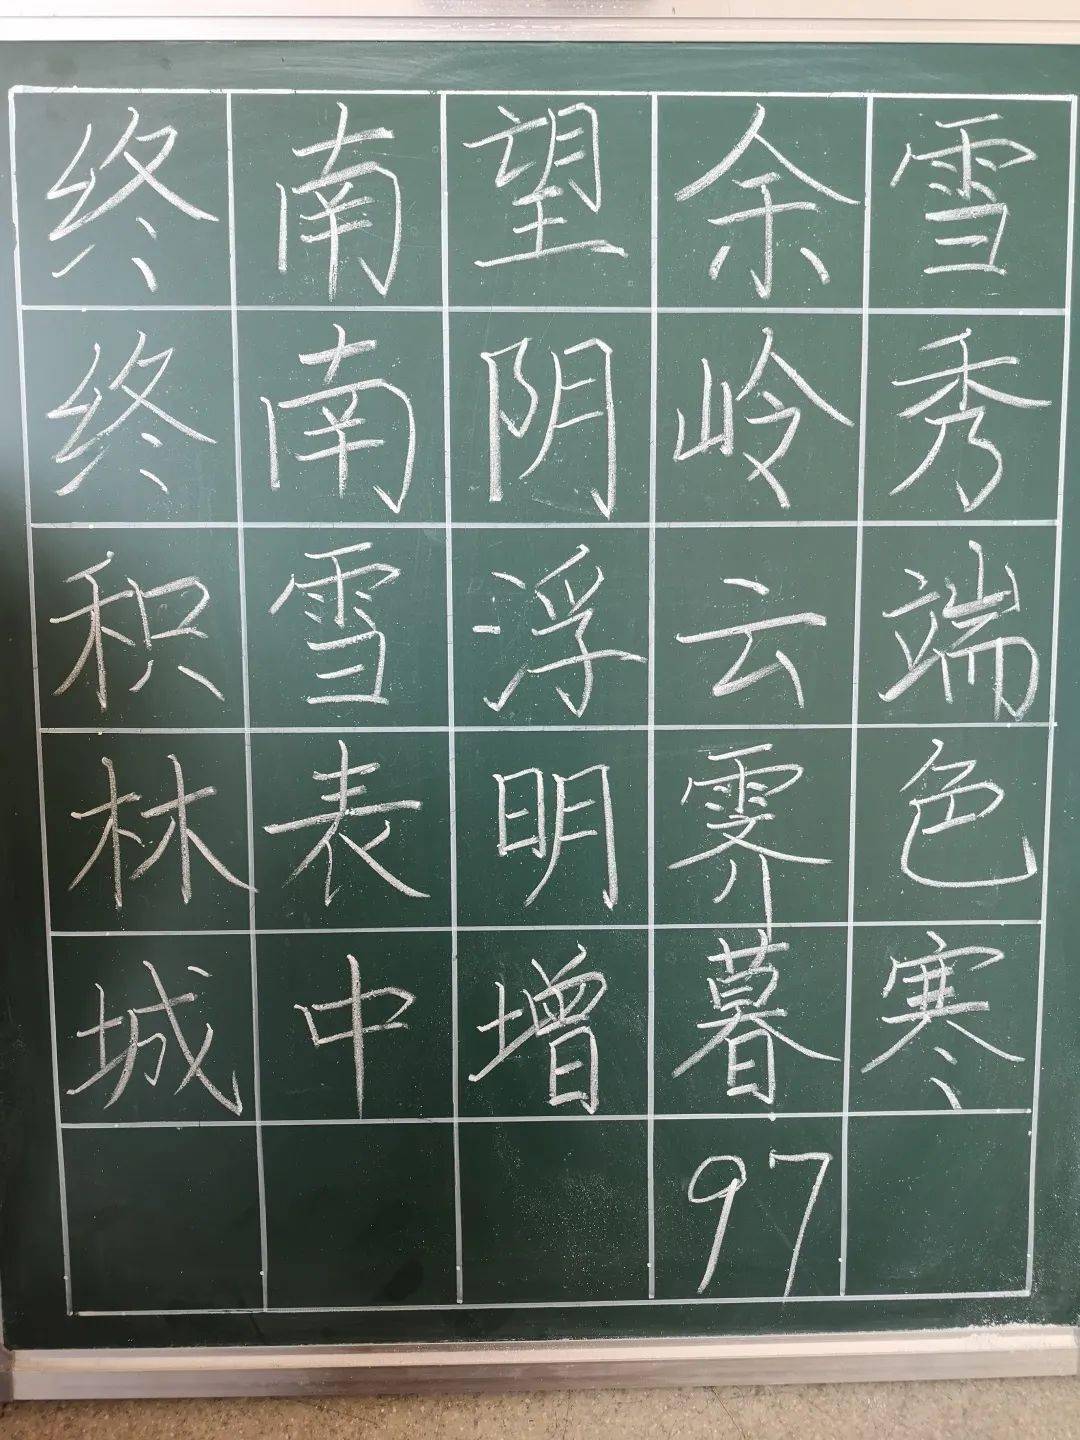 终南望余雪
终南阴岭秀
积雪浮云端
林表明霁色
城中增暮寒
97